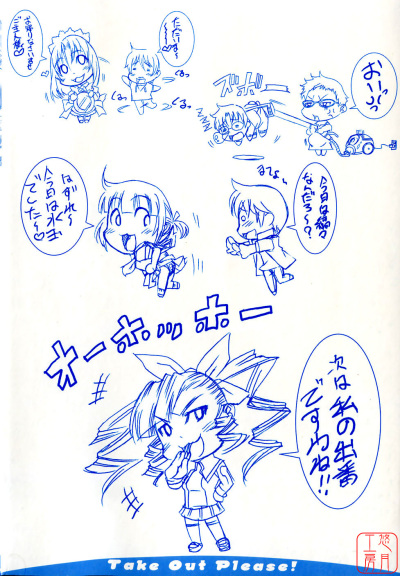 おい〜っ
ズボボー
ただいま〜
〜〜
くるっ
くるっ
お帰りなさいませ
ごきげん様♡
今日は縞々
なんだろ〜?
はずれ〜
今日は水玉
でした〜♡
オーホッホー
次は私の出番
ですわね!!
Take Out Please!
悠月
工房